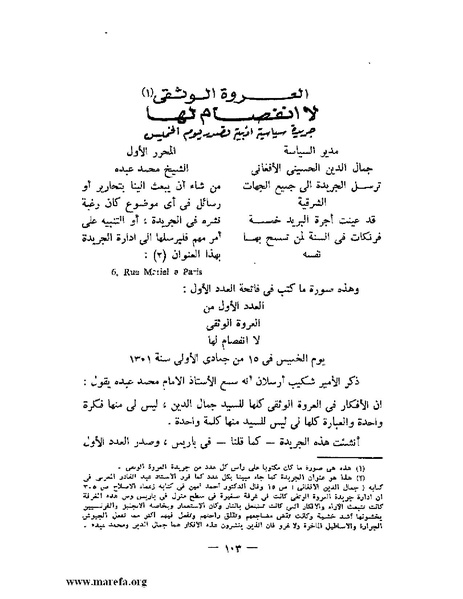 العروة الوثقى (١)
لا انفصام لها
جريدة سياسية أدبية تصدر يوم الخميس
مدير السياسة
جمال الدين الحسينى الأفغانى
ترسل الجريدة الى جميع الجهات
الشرقية
قد عينت أجرة البريد خمسة
فرنكات فى السنة لمن تسمح بها
نفسه
المحرر الأول
الشيخ محمد عبده
من شاء أن يبعث الينا بتحارير أو
رسائل فى أى موضوع كان رغبة
نشره فى الجريدة ، أو التنبيه على
أمر مهم فليرسلها الى ادارة الجريدة
بهذا العنوان (٢) :
6, Rue Martel a Paris
وهذه صورة ما كتب فى فاتحة العدد الأول :
العدد الأول من
العروة الوثقى
لا انفصام لها
يوم الخميس فى ١٥ من جمادى الأولى سنة ١٣٠١
ذكر الأمير شكيب أرسلان أنه سمع الأستاذ الامام محمد عبده يقول :
ان الأفكار فى العروة الوثقى كلها للسيد جمال الدين ، ليس لى منها فكرة
واحدة والعبارة كلها لى ليس للسيد منها كلمة واحدة .
أنشئت هذه الجريدة – كما قلنا – فى باريس ، وصدر العدد الأول
(١) هذه هى صورة ما كان مكتوبا على رأس كل عدد من جريدة العروة الوثقى .
(٢) هذا هو عنوان الجريدة كما جاء مبينا بكل عدد كما قرر الاستاذ عبد القادر المغربى فى
كتابه ( جمال الدين الافغانى ) ص ١٥ وقال الدكتور أحمد أمين فى كتابه زعماء الاصلاح ص ٣٠٥
ان ادارة جريدة العروة الوثقى كانت فى غرفة صغيرة فى سطح منزل فى باريس ومن هذه الغرفة
كانت تنبعث الآراء والأفكار التى كانت تشتعل بالنار وكان الاستعمار وبخاصة الانجليز والفرنسيين
يخشونها أشد خشية وكانت تقض مضاجعهم وتقلق راحتهم وتفعل فيهم أكثر مما تفعل الجيوش
الجرارة والأساطيل الماخرة ولا غرو فان الذين ينشرون هذه الأفكار هما جمال الدين ومحمد عبده .
– ١٠٣ –
www.marefa.org